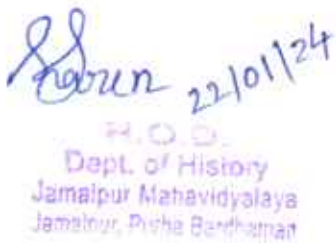 22/01/24
H.O.D.
Dept. of History
Jamalpur Mahavidyalaya
Jamalpur, Purba Bardhaman